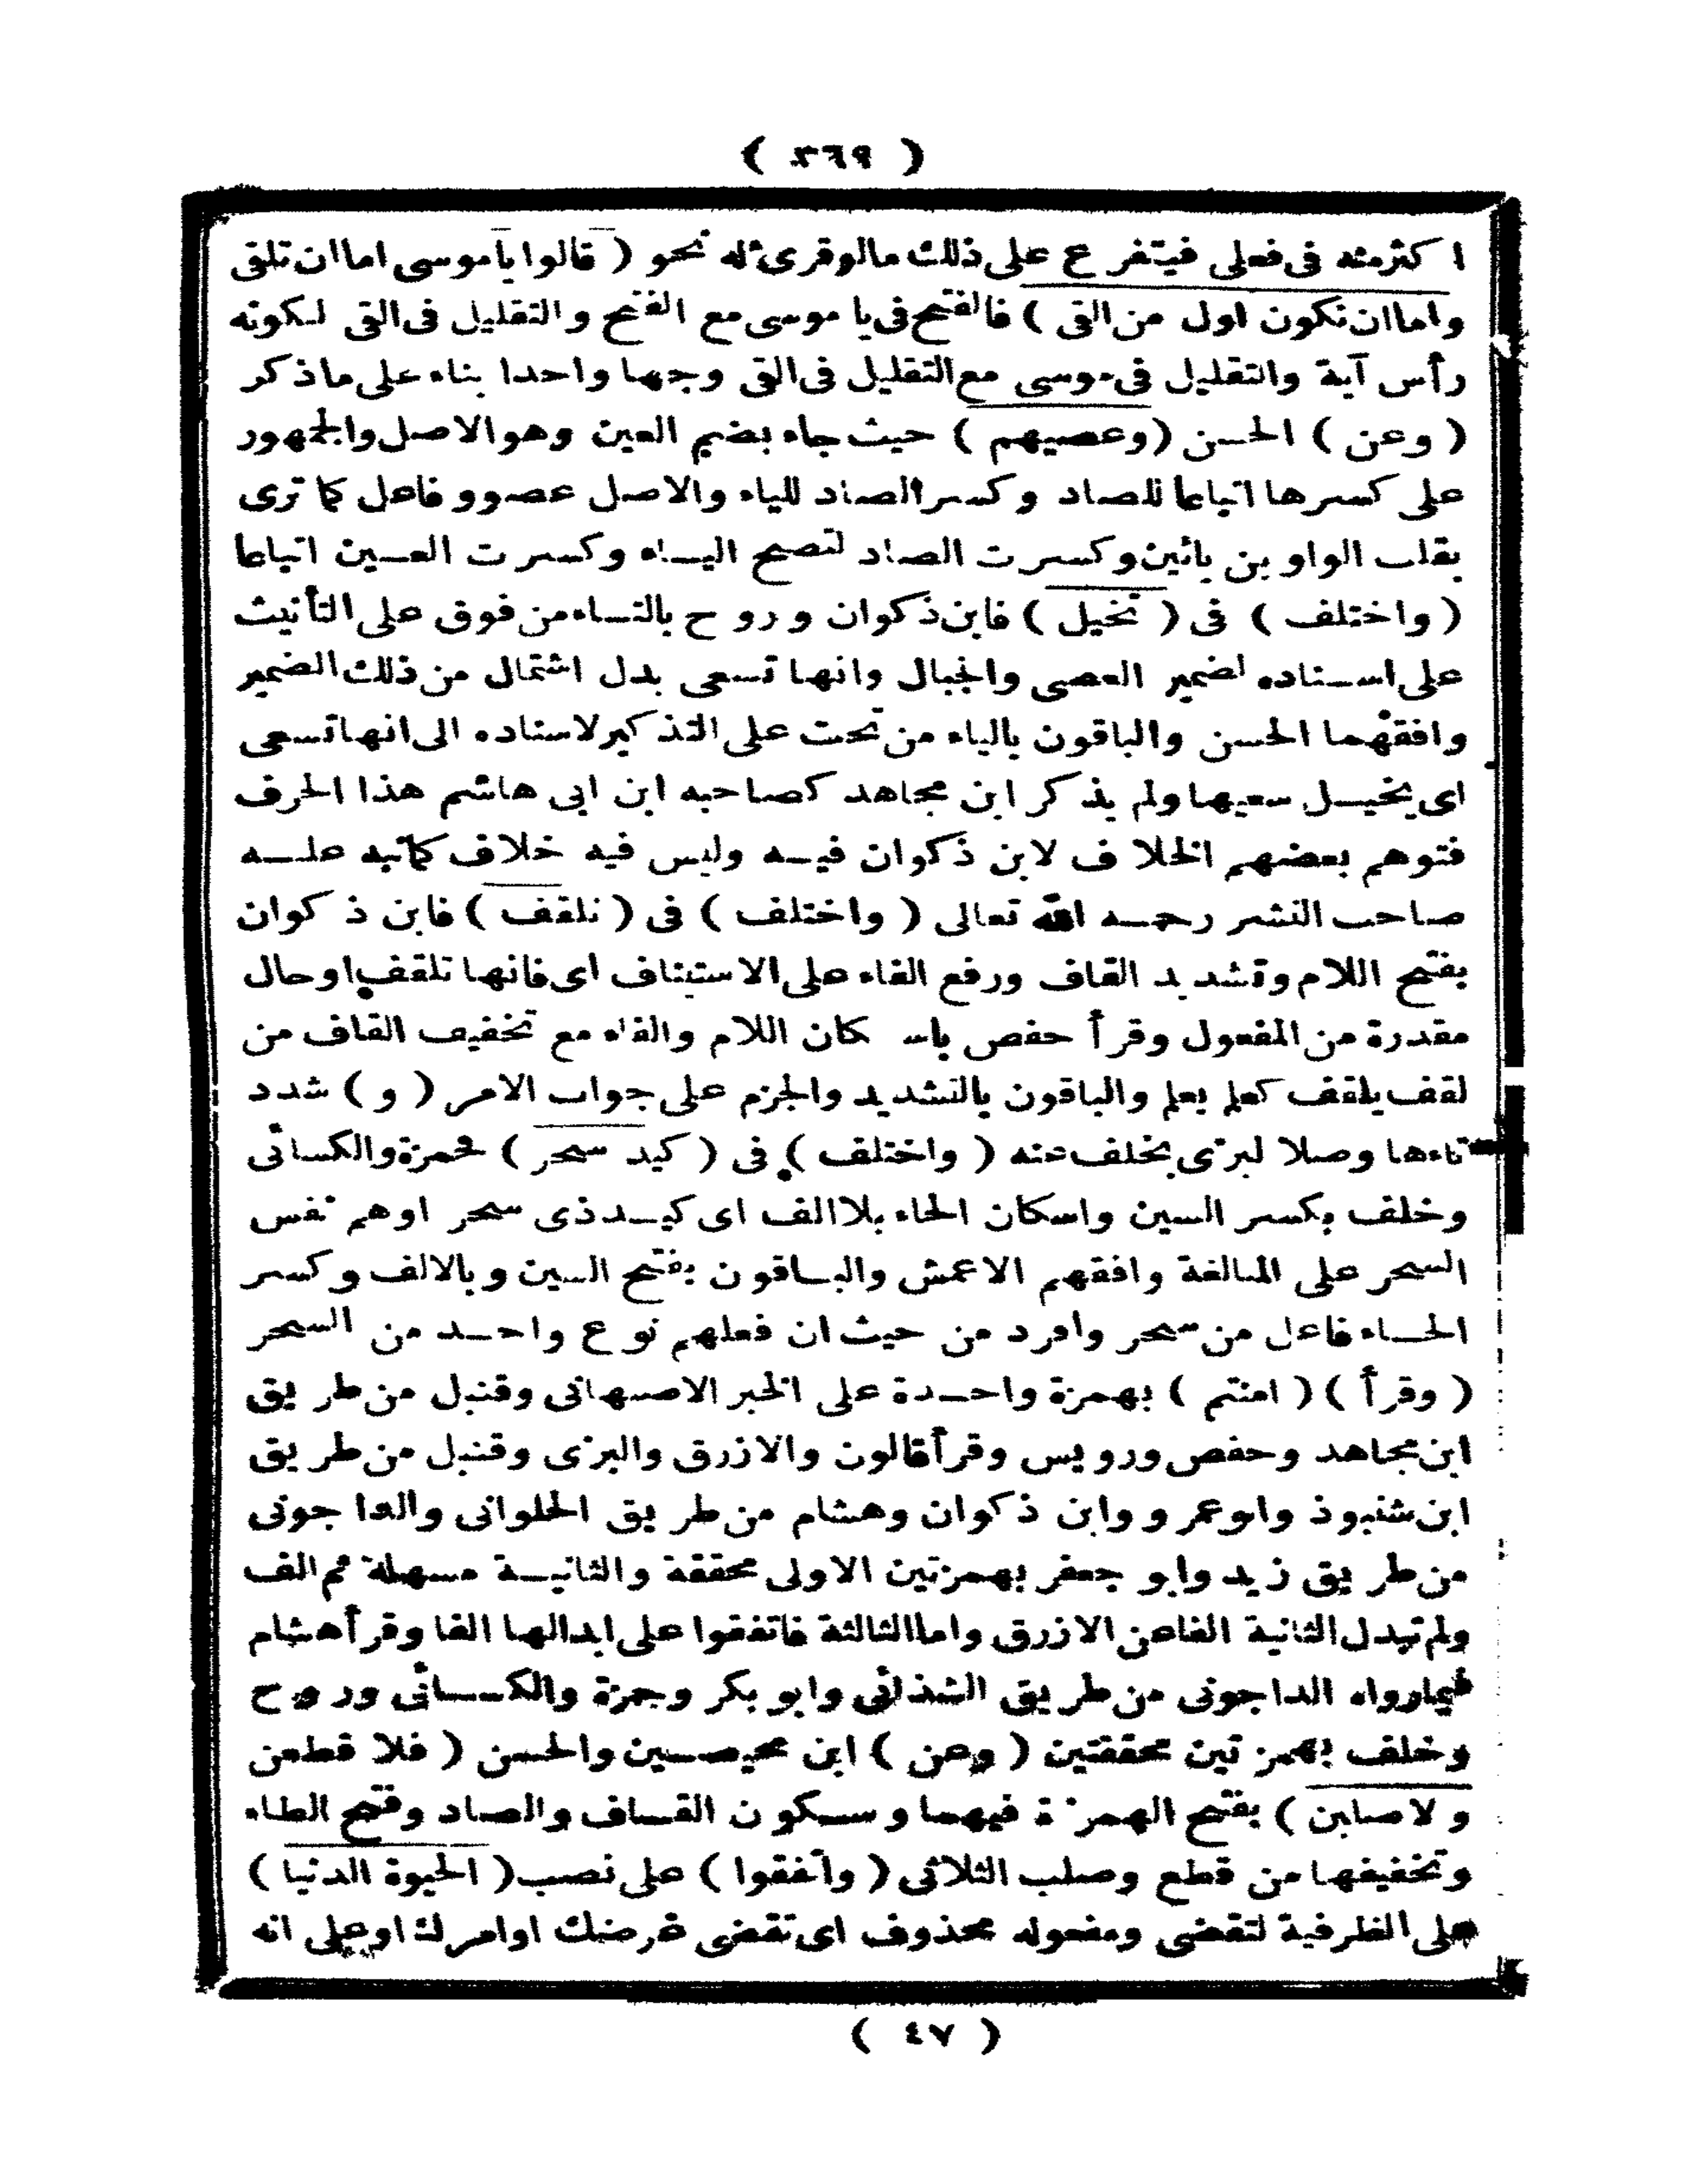 ( ٣٦٩ )
اكثر منه فى فعلى فيتفرع على ذلك مالو قرئ له نحو ( قالوا يا موسى اما ان تلقى
واما ان نكون اول من القى ) فالفتح فى يا موسى مع الفتح والتقليل فى القى لكونه
رأس آية والتقليل فى موسى مع التقليل فى القى وجها واحدا بناء على ما ذكر
( وعن ) الحسن ( وعصيهم ) حيث جاء بضم العين وهو الاصل والجمهور
على كسرها اتباعا للصاد وكسر الصاد للياء والاصل عصوو فاعل كما ترى
بقلب الواوين يائين وكسرت الصاد لتصح الياء وكسرت العين اتباعا
( واختلف ) فى ( تخيل ) فابن ذكوان وروح بالتاء من فوق على التأنيث
على اسناده لضمير العصى والحبال وانها تسعى بدل اشتمال من ذلك الضمير
وافقهما الحسن والباقون بالياء من تحت على التذكير لاسناده الى انها تسعى
اى يخيل سعيها ولم يذكر ابن مجاهد كصاحبه ابن ابى هاشم هذا الحرف
فتوهم بعضهم الخلاف لابن ذكوان فيه وليس فيه خلاف كما نبه عليه
صاحب النشر رحمه الله تعالى ( واختلف ) فى ( تلقف ) فابن ذكوان
بفتح اللام وتشديد القاف ورفع الفاء على الاستيناف اى فانها تلقف او حال
مقدرة من المفعول وقرأ حفص باسكان اللام والفاء مع تخفيف القاف من
لقف يلقف كعلم يعلم والباقون بالتشديد والجزم على جواب الامر ( و ) شدد
تاءها وصلا البزى بخلف عنه ( واختلف ) فى ( كيد سحر ) فحمزة والكسائى
وخلف بكسر السين واسكان الحاء بلا الف اى كيد ذى سحر اوهم نفس
السحر على المبالغة وافقهم الاعمش والباقون بفتح السين وبالالف وكسر
الحاء فاعل من سحر وافرد من حيث ان فعلهم نوع واحد من السحر
( وقرأ ) ( امنتم ) بهمزة واحدة على الخبر الاصبهانى وقنبل من طريق
ابن مجاهد وحفص ورويس وقرأ قالون والازرق والبزى وقنبل من طريق
ابن شنبوذ وابو عمرو وابن ذكوان وهشام من طريق الحلوانى والداجونى
من طريق زيد وابو جعفر بهمزتين الاولى محققة والثانية مسهلة ثم الف
ولم تبدل الثانية الفا عن الازرق واما الثالثة فاتفقوا على ابدالها الفا وقرأ هشام
فيما رواه الداجونى من طريق الشذائى وابو بكر وحمزة والكسائى وروح
وخلف بهمزتين محققتين ( وعن ) ابن محيصن والحسن ( فلا قطعن
ولا صلبن ) بفتح الهمزة فيهما وسكون القاف والصاد وفتح الطاء
وتخفيفها من قطع وصلب الثلاثى ( واتفقوا ) على نصب ( الحيوة الدنيا )
على الظرفية لتقضى ومفعوله محذوف اى تقضى غرضك او امرك او على انه
( ٤٧ )